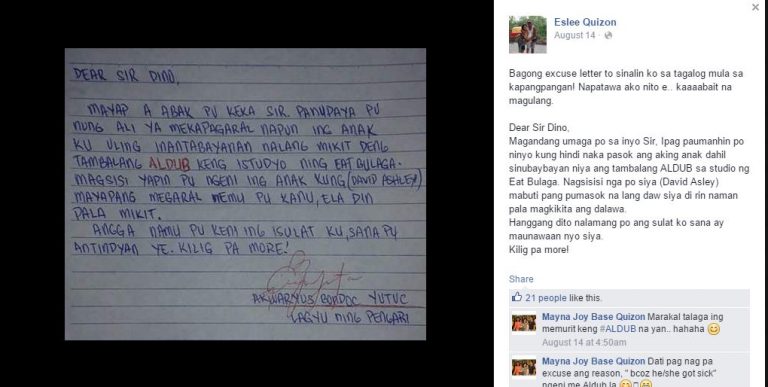 DEAR SIR DINO,
MAYAP A ABAK PU KEKA SIR. PANUPAYA PU
NUNG ALI YA MEKAPAGARAL NAPUN ING ANAK
KU ULING INANTABAYANAN NALANG MIKIT DENG
TAMBALANG ALDUB KENG ISTUDYO NING EAT BULAGA.
MAGSISI YAPIN PU NGENI ING ANAK KUNG (DAVID ASHLEY)
MAYAPANG MEGARAL MEMU PU KANU, ELA DIN
PALA MIKIT.
ANGGA NAMU PU KENI ING ISULAT KU, SANA PU
ANTINDYAN YE. KILIG PA MORE!
AKWARYUS BONDOC YUTUC
LAGYU NING PENGARI
Eslee Quizon
August 14
Bagong excuse letter to sinalin ko sa tagalog mula sa
kapangpangan! Napatawa ako nito e.. kaaaabait na
magulang.
Dear Sir Dino,
Magandang umaga po sa inyo Sir, Ipag paumanhin po
ninyo kung hindi naka pasok ang aking anak dahil
sinubaybayan niya ang tambalang ALDUB sa studio ng
Eat Bulaga. Nagsisisi nga po siya (David Asley)
mabuti pang pumasok na lang daw siya di rin naman
pala magkikita ang dalawa.
Hanggang dito nalamang po ang sulat ko sana ay
maunawaan nyo siya.
Kilig pa more!
Share
21 people like this.
Mayna Joy Base Quizon Marakal talaga ing
memurit keng #ALDUB na yan.. hahaha
August 14 at 4:50am
Mayna Joy Base Quizon Dati pag nag pa
excuse ang reason, " bcoz he/she got sick"
ngeni me Aldub la